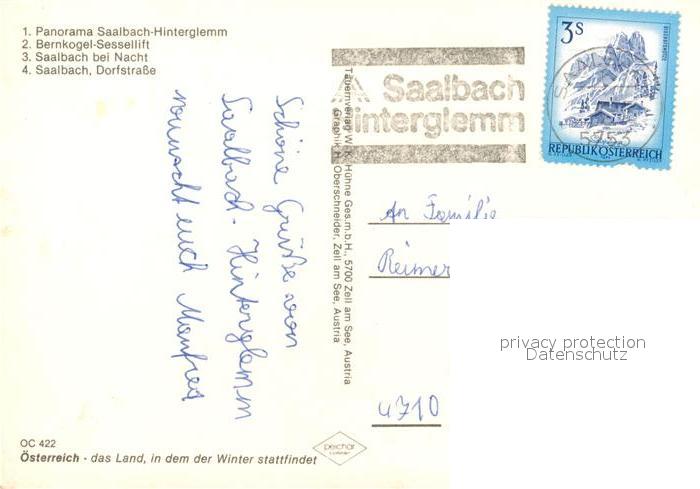 1. Panorama Saalbach-Hinterglemm
2. Bernkogel-Sessellift
3. Saalbach bei Nacht
4. Saalbach, Dorfstraße
Schöne Grüße von
Saalbach-Hinterglemm
wünscht euch Manfred
Tauernverlag W. K. Hühne Ges.m.b.H., 5700 Zell am See, Austria
Graphik H. Oberschneider, Zell am See, Austria
Saalbach
Hinterglemm
3s
SAALBACH
5753
REPUBLIK ÖSTERREICH
An Familie
Reimer
4710
privacy protection
Datenschutz
OC 422
Österreich - das Land, in dem der Winter stattfindet